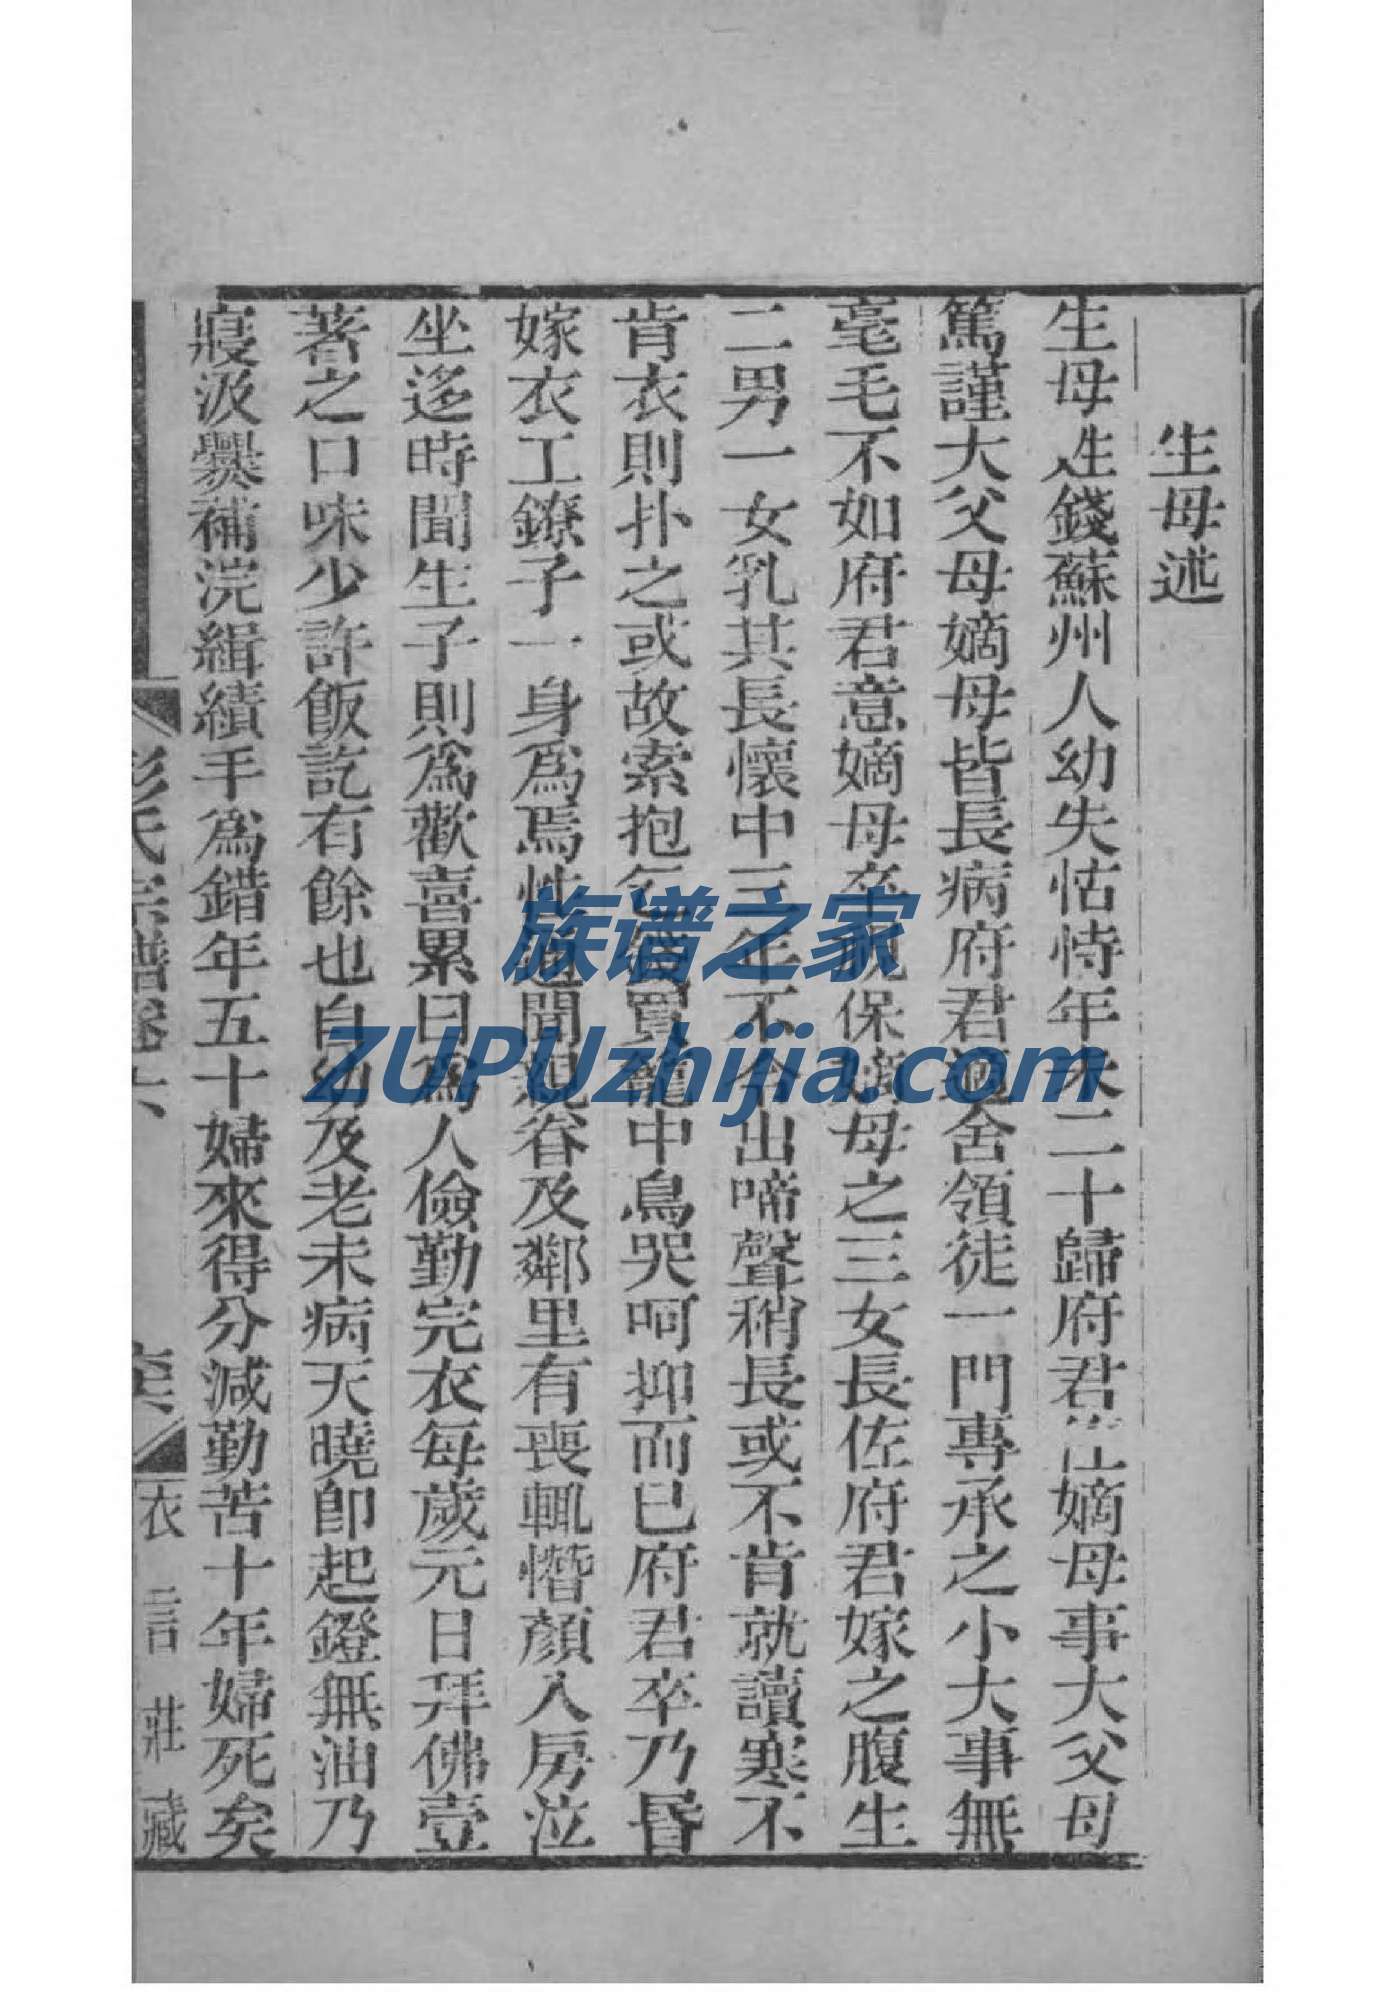 生母述
生母姓錢蘇州人幼失怙恃年未二十歸府君嫡母事大父母
篤謹大父母嫡母皆長病府君適舍領徒一門專承之小大事無
毫毛不如府君意嫡母卒既保嫡母之三女長佐府君嫁之腹生
二男一女乳其長懷中三年不令出啼聲稍長或不肯就讀寒不
肯衣則扑之或故索抱乞買籠中鳥哭呵抑而已府君卒乃昏
嫁衣工鐐子一身為焉性聞親眷及鄰里有喪輒慘顏入房泣
坐迻時聞生子則為歡喜累日為人儉勤完衣每歲元日拜佛壹
著之口味少許飯訖有餘也自幼及老未病天曉即起鐙無油乃
寢汲爨補浣緝績手為錯年五十婦來得分減勤苦十年婦死矣
彭氏宗譜卷六
衣言莊藏
族谱之家
ZUPUzhijia.com